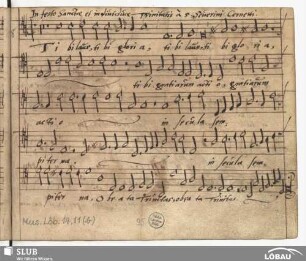 In festo Sanctae et individuae Trinitatis à 5 Severini Corneti
Ti bi laus, ti bi glori a, ti bi laus, ti bi glo ri a,
ti bi gratiarum acti o, gratiarum
acti o in secula sem,
pi ter na, in secula sem,
piter na, O be a ta Trinitas, o bea ta Trinitas
Mus. Löb. 14,11(6)
SLUB
Wir führen Wissen.
LÖBAU